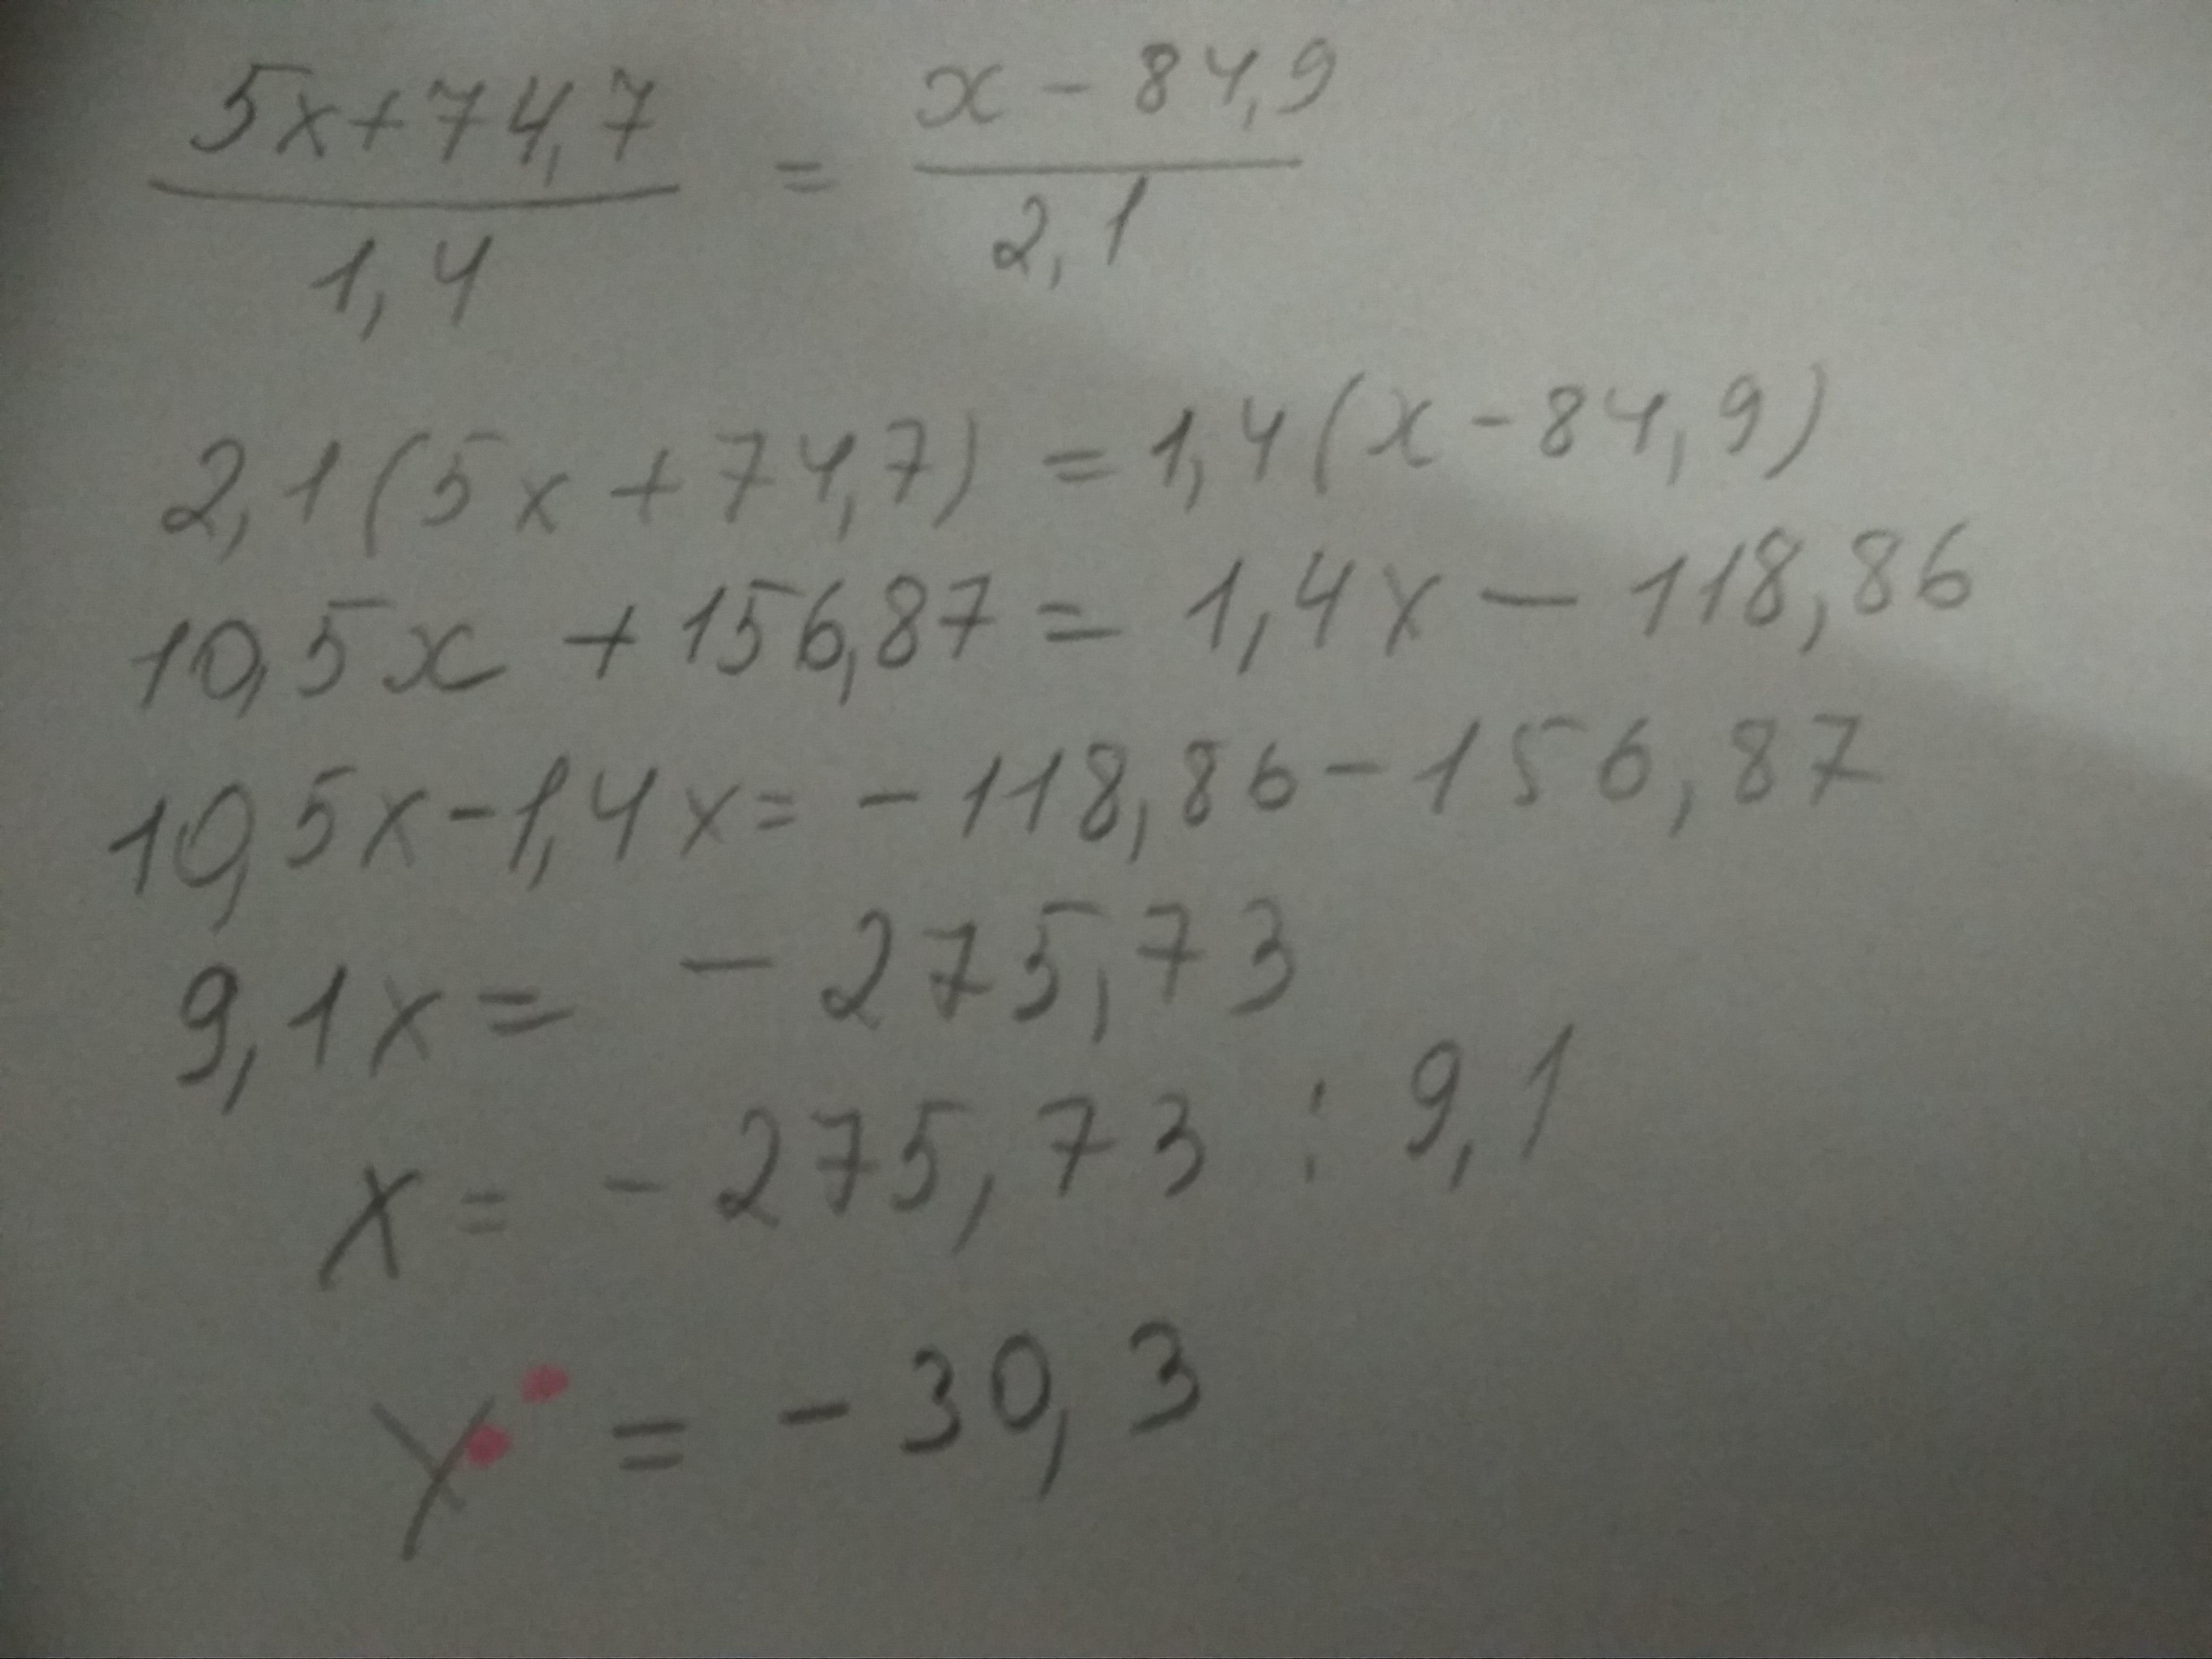 5x+74,7 = x - 84,9
1,4 2,1
2,1(5x+74,7) = 1,4(x-84,9)
10,5x + 156,87 = 1,4x - 118,86
10,5x-1,4x = -118,86-156,87
9,1x = -275,73
x = -275,73 : 9,1
x = -30,3